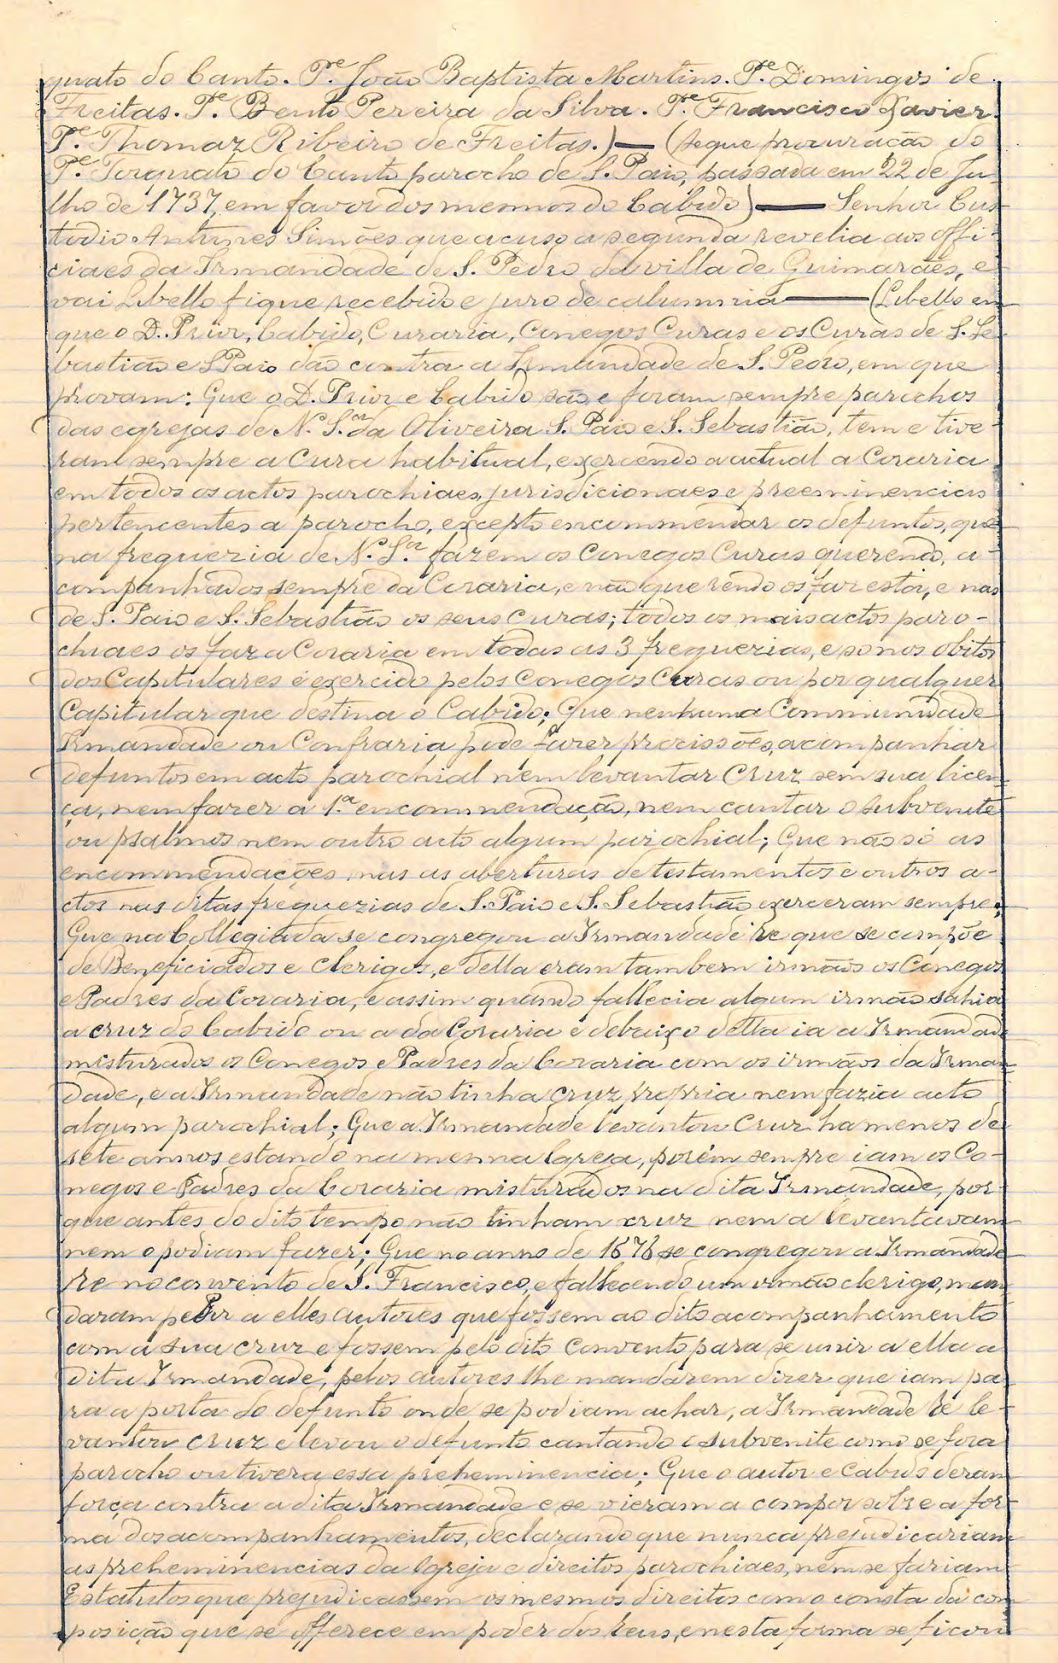 quato do Canto. P.e João Baptista Martins. P.e Domingos de
Freitas. P.e Bento Pereira da Silva. P.e Francisco Xavier.
P.e Thomaz Ribeiro de Freitas.) — (Segue procuração do
P.e Torquato do Canto parocho de S. Paio, passada em 22 de Ju-
lho de 1737, em favor dos mesmos do Cabido) — Senhor Cus-
todio Antunes Simões que acuso a segunda revelia aos offi-
ciaes da Irmandade de S. Pedro da villa de Guimarães, e
vai Libello fique recebido e juro de calumnia — (Libello em
que o D. Prior, Cabido, Coraria, Conegos Curas e os Curas de S. Se-
bastião e S. Paio dão contra a Irmandade de S. Pedro, em que
provam: Que o D. Prior e Cabido são e foram sempre parochos
das egrejas de N. S.ra da Oliveira S. Paio e S. Sebastião, tem e tive-
ram sempre a Cura habitual, exercendo a actual a Coraria
em todos os actos parochiaes, jurisdicionaes e preeminencias
pertencentes a parocho, excepto encommendar os defuntos, que
na freguezia de N. S.ra fazem os Conegos Curas querendo, a-
companhados sempre da Coraria, e não querendo os faz esta, e nas
de S. Paio e S. Sebastião os seus Curas; todos os mais actos paro-
chiaes os faz a Coraria em todas as 3 freguezias, e só nos obitos
dos Capitulares é exercido pelos Conegos Curas ou por qualquer
Capitular que destina o Cabido; Que nenhuma Communidade
Irmandade ou Confraria pode fazer procissões, acompanhar
defuntos em acto parochial nem levantar Cruz sem sua licen-
ça, nem fazer a 1.a encommendação, nem cantar o subvenite
ou psalmos nem outro acto algum parochial; Que não só as
encommendações mas as aberturas de testamentos e outros a-
ctos nas ditas freguezias de S. Paio e S. Sebastião exerceram sempre;
Que na Collegiada se congregou a Irmandade re que se compõe
de Beneficiados e Clerigos, e della eram tambem irmãos os Conegos
e Padres da Coraria, e assim quando fallecia algum irmão sahia
a cruz do Cabido ou a da Coraria e debaixo della ia a Irmandade
misturados os Conegos e Padres da Coraria com os irmãos da Irman-
dade, e a Irmandade não tinha cruz propria nem fazia acto
algum parochial; Que a Irmandade levantou Cruz ha menos de
sete annos estando na mesma Egreja, porém sempre iam os Co-
negos e Padres da Coraria misturados na dita Irmandade, por-
que antes do dito tempo não tinham cruz nem a levantavam
nem o podiam fazer; Que no anno de 1676 se congregou a Irmandade
Re no convento de S. Francisco, e fallecendo um irmão clerigo, man-
daram pedir a elles autores que fossem ao dito acompanhamento
com a sua cruz e fossem pelo dito convento para se unir a ella a
dita Irmandade, pelos autores lhe mandarem dizer que iam pa-
ra a porta do defunto onde se podiam achar, a Irmandade Re le-
vantou cruz e levou o defunto cantando o subvenite como se fora
parocho ou tivera essa preheminencia; Que o autor e Cabido deram
força contra a dita Irmandade e se vieram a compor sobre a for-
ma dos acompanhamentos, declarando que nunca prejudicariam
as preheminencias da Egreja e direitos parochiaes, nem se fariam
Estatutos que prejudicassem os mesmos direitos como consta da com-
posição que se offerece em poder dos Reus, e nesta forma se ficou